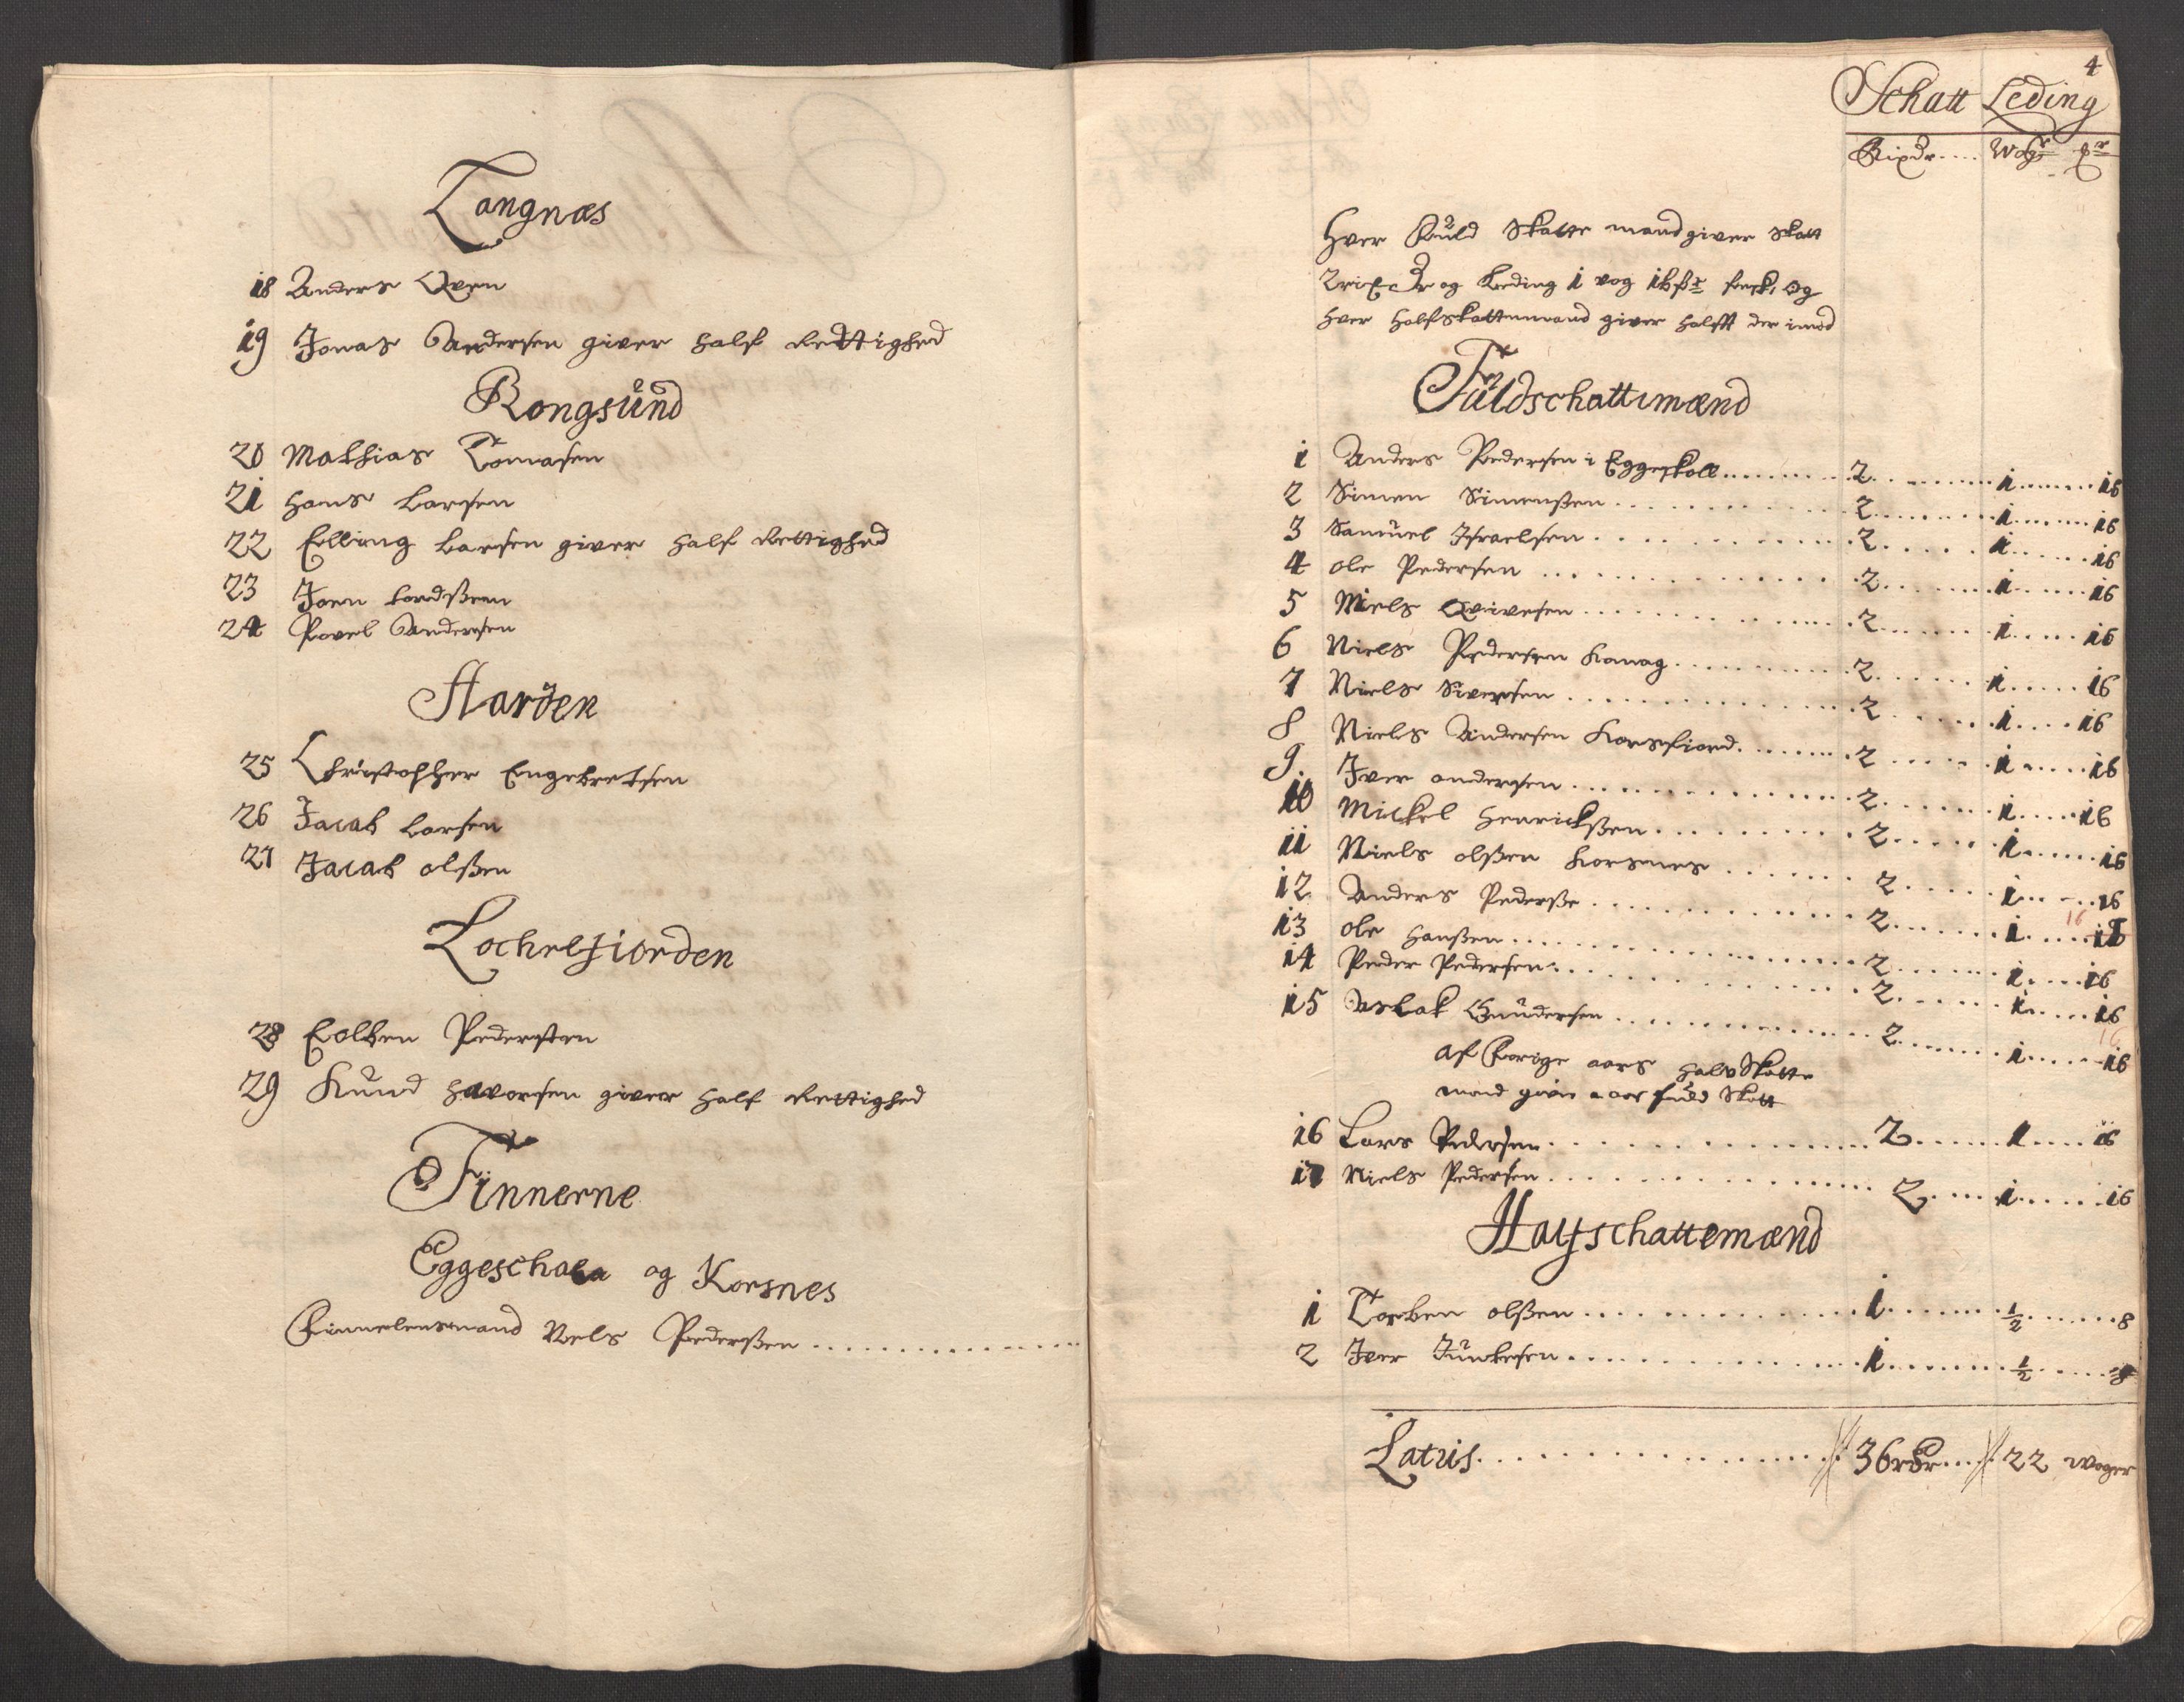 Tangnæs
18 Anders Qven
19 Jonas Andersen giver half Rettighed
Rongsünd
20 Mathias Tomasen
21 Hans Larsen
22 Elling Larsen giver half Rettighed
23 Joen
24 Povel Andersen
Harden
25 Christopher Engebretsen
26 Jacob Larsen
27 Jacob olßen
Lochelfiorden
28 Pedersen
29 Knud giver half Rettighed
Finnerne
Eggeschala og Korsnes
Finnelensmand Nels Pederßen
4
Schatt Leding
Rixdr Wogr
Hver Fuld Skatte mand giver Skatt
2 rixdr og Leding 1 vog 16 og
hver halfskattemand giver halfft der imod
Füldschattemænd
1 Anders Pedersen i Eggeskall 2 1 16
2 Simen Simenßen 2 1 16
3 Samuel Israelsen 2 1 16
4 ole Pedersen 2 1 16
5 Niels 2 1 16
6 Niels Pedersen 2 1 16
7 Niels Siversen 2 1 16
8 Niels Andersen Korsfiord 2 1 16
9 Iver andersen 2 1 16
10 Mickel Henrickßen 2 1 16
11 Niels olßen Korsnes 2 1 16
12 Anders Pederße 2 1 16
13 ole Hanßen 2 1 16
14 Peder Pedersen 2 1 16
15 Aslak Gundersen 2 1 16
af Forige aars halv Skatte
mand giver a aar fuld Skatt
16 Lars Pedersen 2 1 16
17 Niels Pedersen 2 1 16
Halfschattemænd
1 Torben olßen 1 ½ 8
2 Iver 1 ½ 8
Latus 36 rdr 22 woger